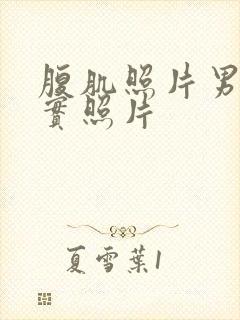 腹肌照片男
實照片
夏雪葉1